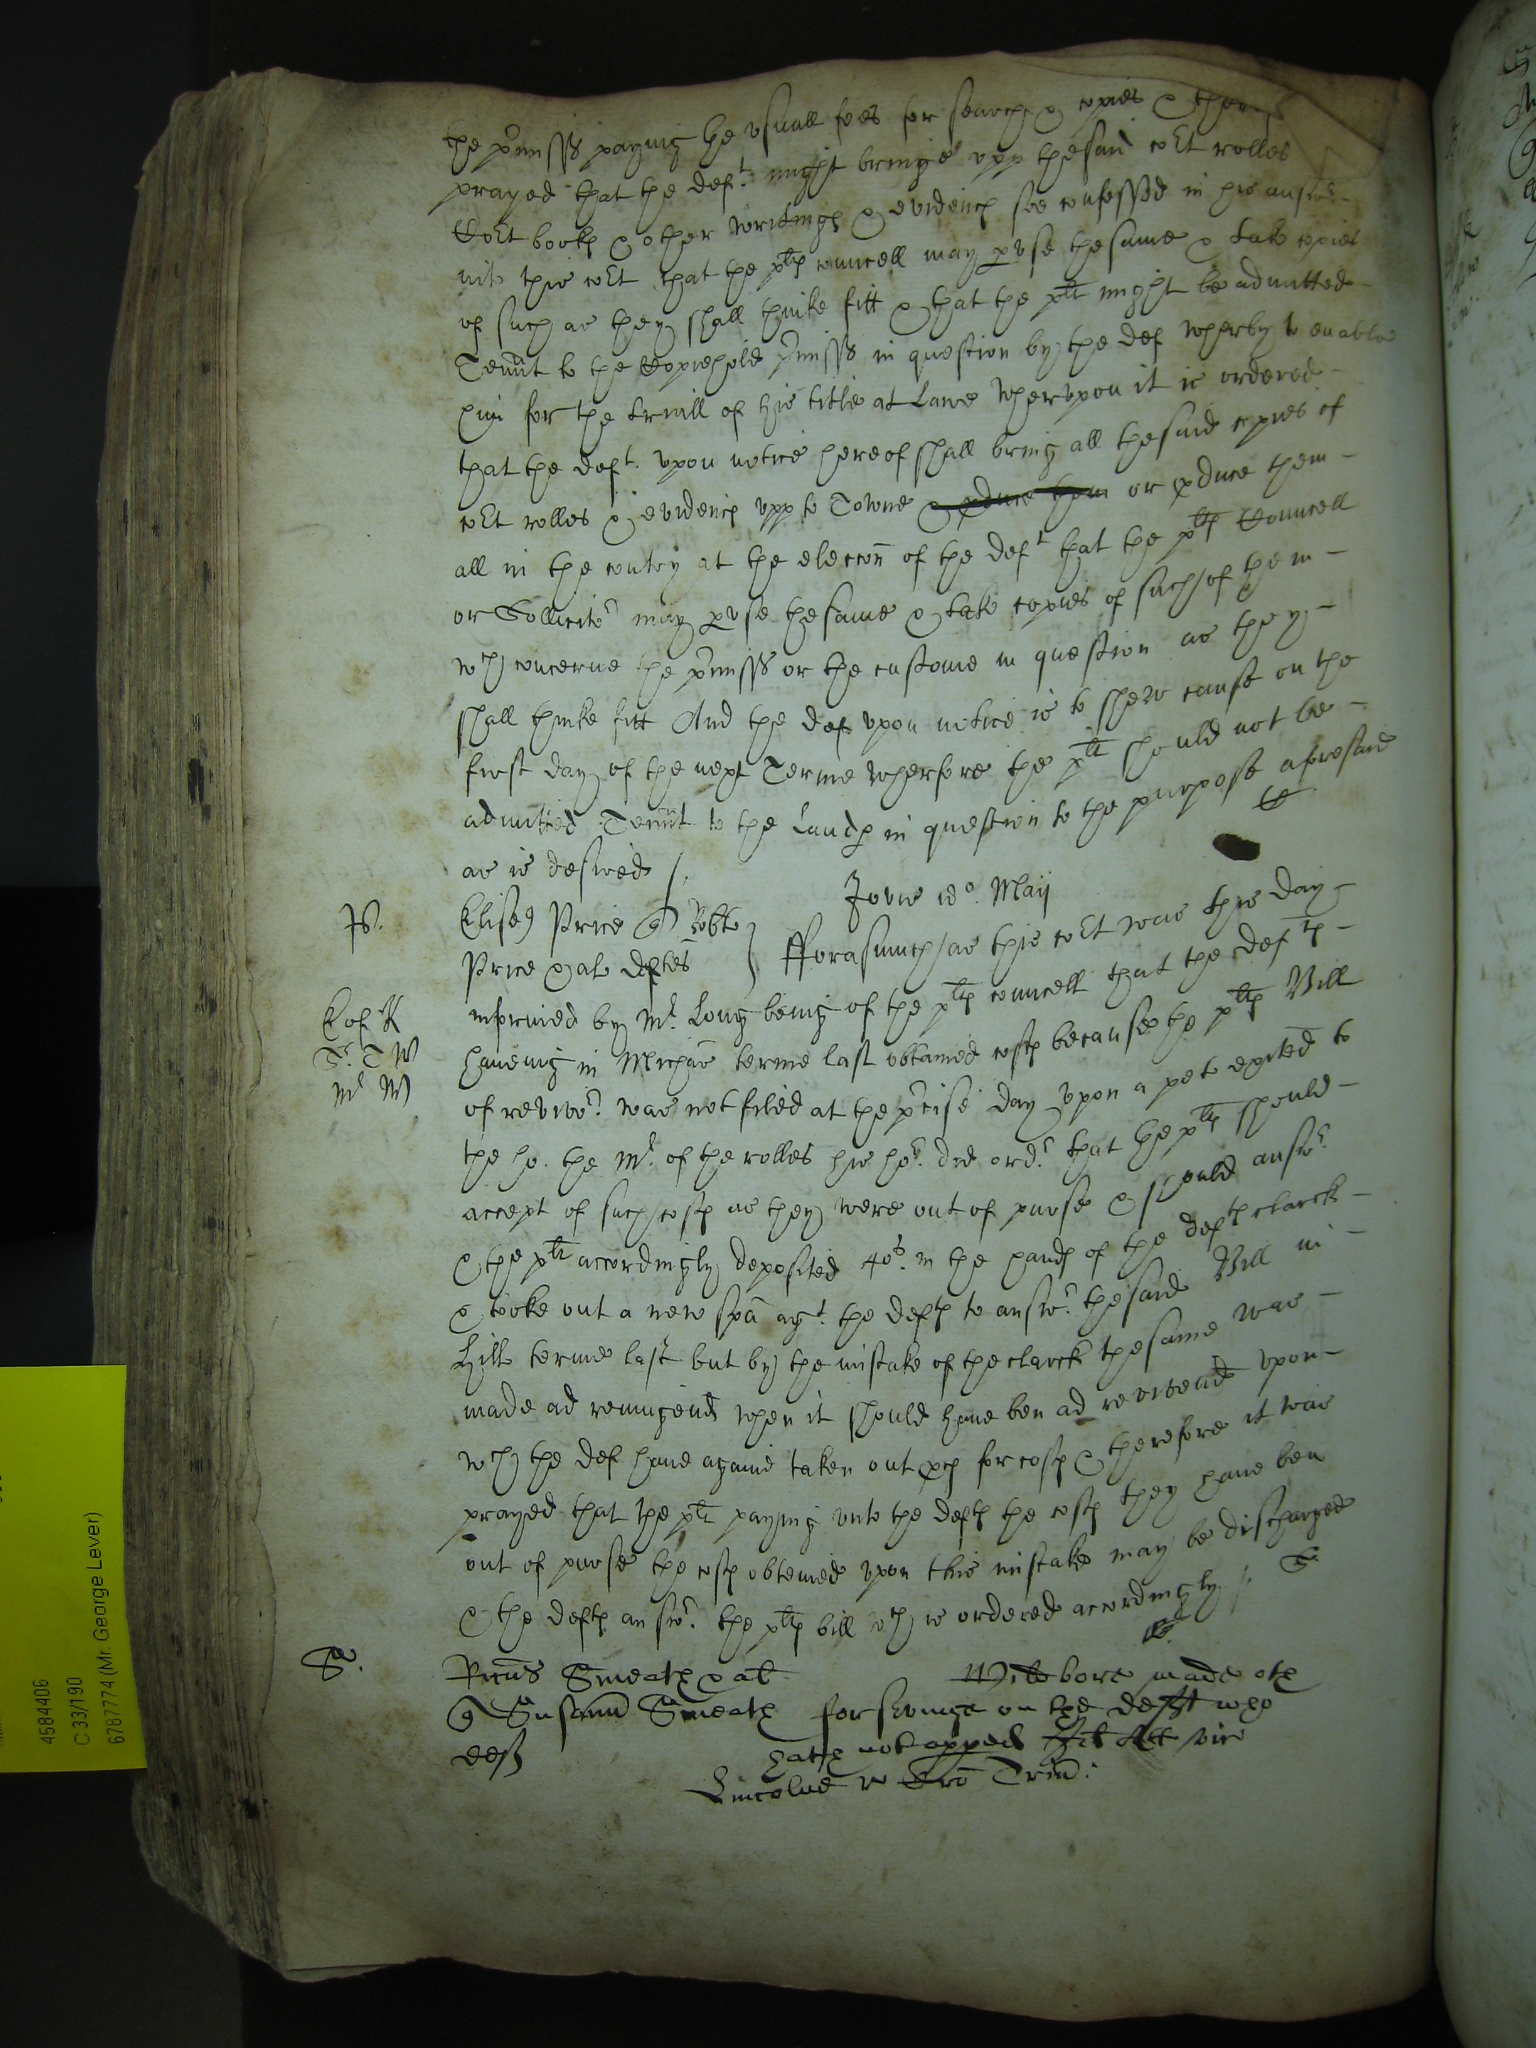 the p'miss's paying the usuall fees for search & copies & ther
prayed that the def.t might bringe upp the said co't rolles
Co't book & other writings & evidenc soe confessed in his answ
unto this co't that the pl't councell may p'use the same & take copies
of such as they shall thinke fitt & that the pl't might be admitted
Tenn't to the Copiehold p'miss's in question by the def wherby to enable
him for the triall of his title at Lawe Wherupon it is ordered
that the def.t upon notice hereof shall bring all the said copies of
co't rolles & evidenc upp to Towne & p'duce them or p'duce them
all in the contry at the elecc'on of the def.t that the pl't Councell
or Sollicito.r may p'use the same & take copies of such of them
w.ch concerne the p'miss's or the custome in question as they
shall thinke fitt And the def upon notice is to shew cause on the
first day of the next Terme Wherfore the pl't should not be
admitted Tenn't to the Lands in question to the purpose aforesaid
as is desired /.
Jovis 18.o Maij
P.
Elise9 Price q Robto
Price & al' deftes } Fforasmuch as this co't was this day
informed by M.r Long being of the pl't councell that the def.ts
haveing in Mich'as terme last obtained costs because the pl't Bill
of revivo.r was not filed at the p'cise day upon a pet' exited to
the ho. the M.r of the rolles his ho.r did ord.r that the pl't should
accept of such costs as they were out of purse & should answ.r
& the pl't accordingly deposited 40.s in the hands of the def.ts clarck
& tooke out a new sp'a ag.t the defts to answ.r the said Bill in
Hill' terme last but by the mistake of the clarck the same was
made ad rejungend' when it should have ben ad revivend' upon
w.ch the def have againe taken out p'c for costs & therefore it was
prayed that the pl't paying unto the defts the costs they have ben
out of purse the costs obteined upon this mistake may be discharged
& the defts answ.r the pl't bill w.ch is ordered accordingly /.
S.
Ric'us Smeath & al'
q Susann' Smeath
def
made oth
for serving on the deft who
hath not apped
Lincolne r' Trin':
4584406
C 33/190
6787774 (Mr. George Lever)